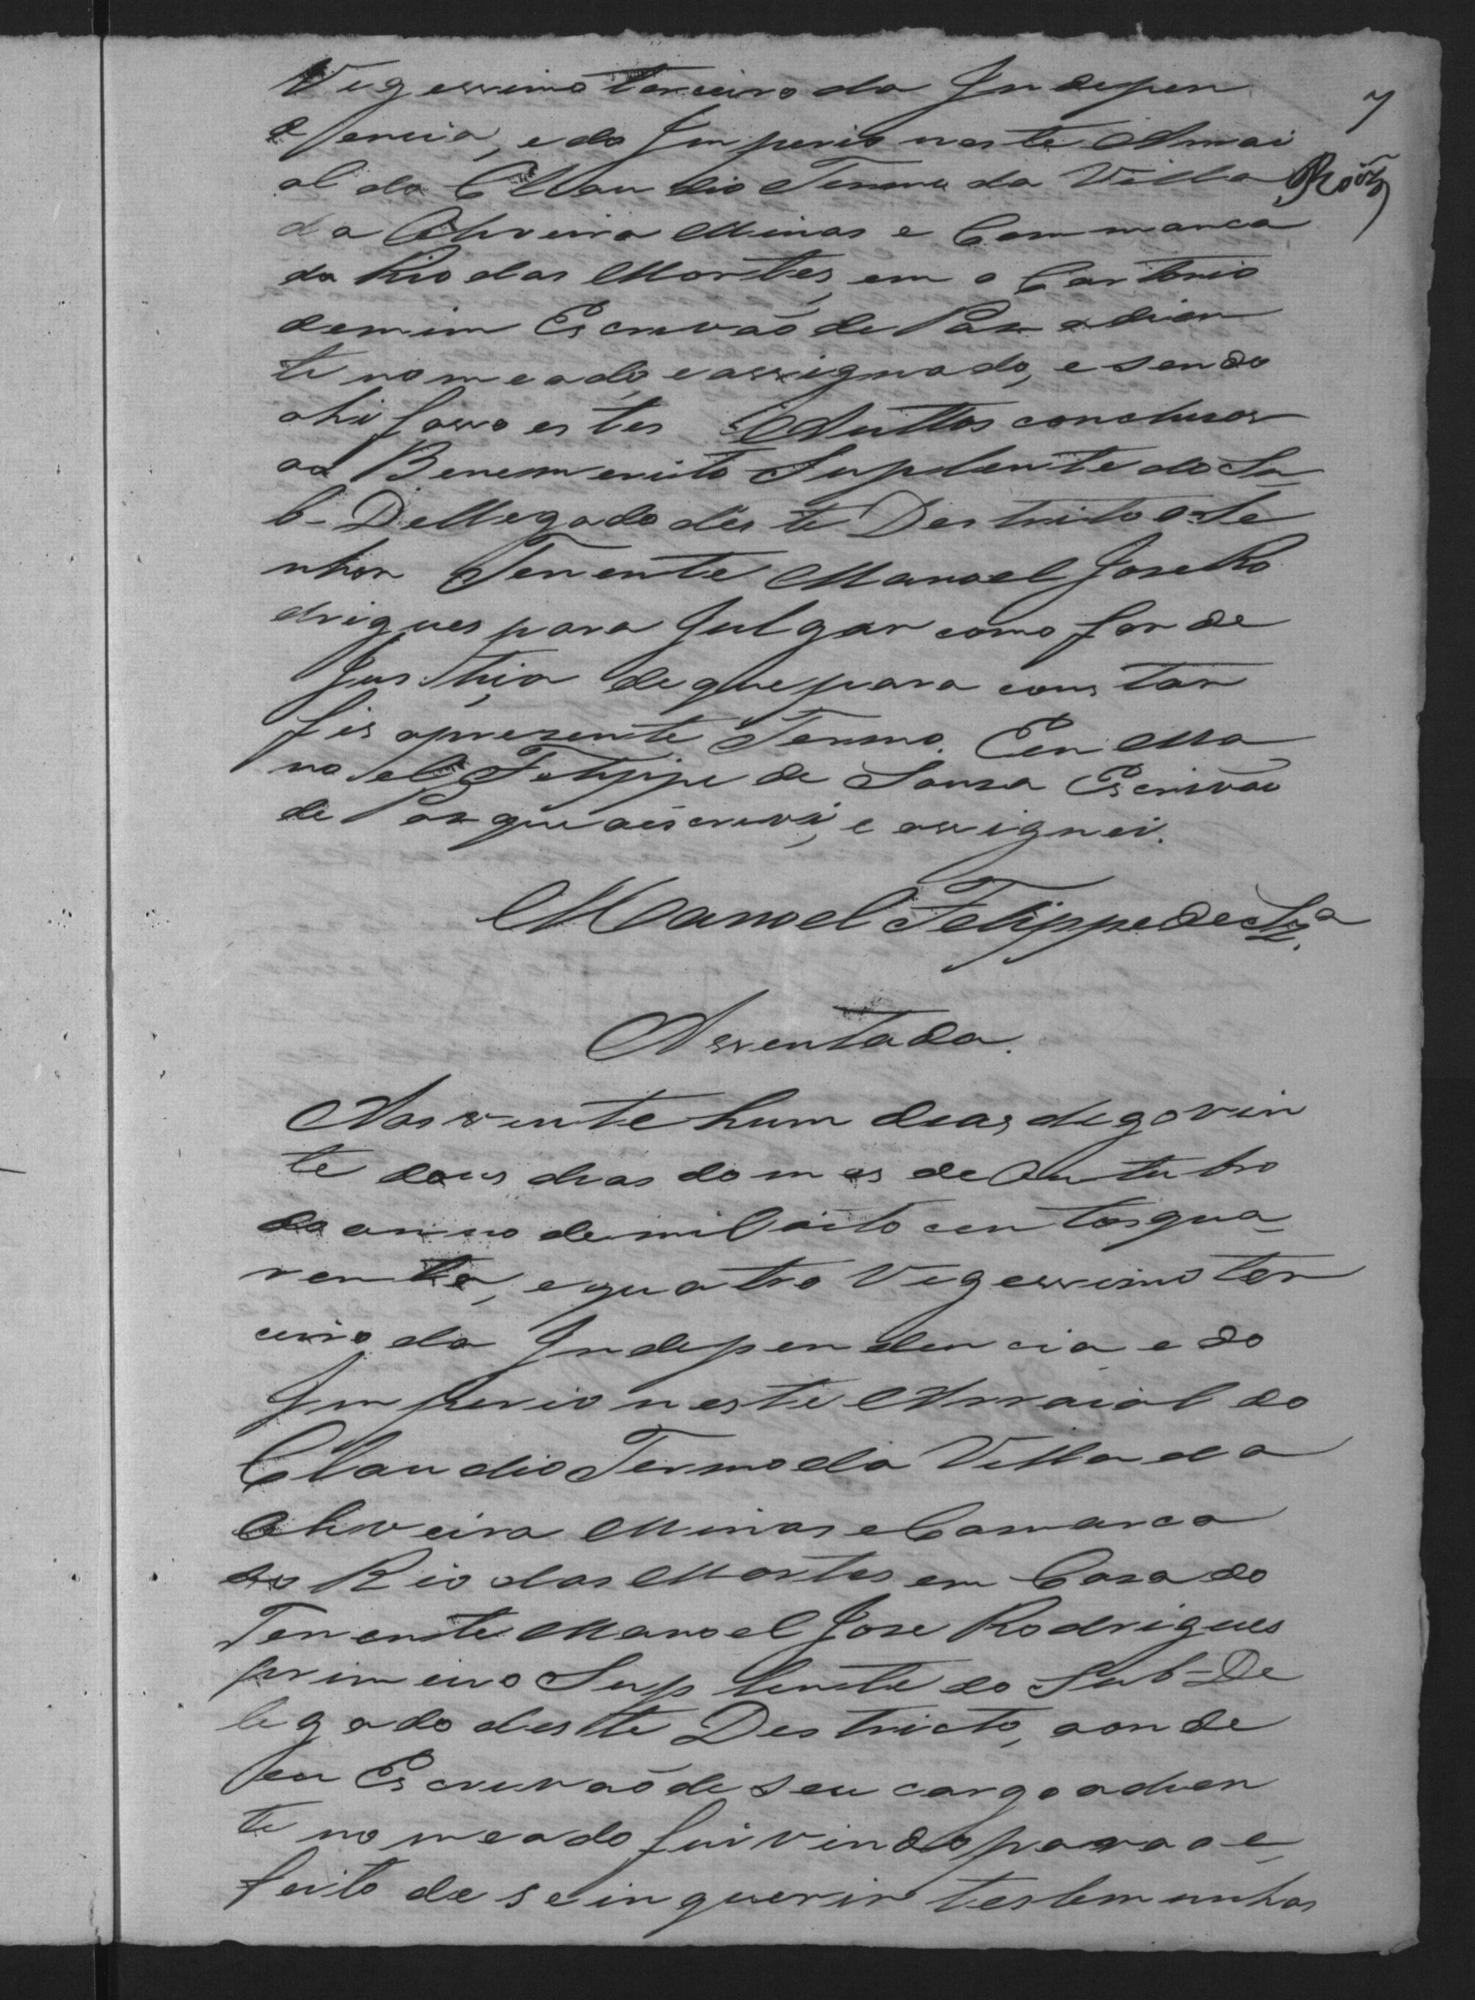 7
Roiz
Vigessimo terceiro da Indepen
dencia, e do Imperio neste Arrai
al do Claudio Termo da Villa
da Oliveira Minas e Commarca
do Rio das Mortes, em o Cartorio
de mim Escrivaõ de Pas adian
te nomeado, e assignado, e sendo
ahi fasso estes Auttos concluzos
ao Benemerito Suplente do Su
b-Dellegado deste Destrito o Se
nhor Tenente Manoel Jose Ro
drigues para Julgar como for de
Justiça de que para constar
fis o prezente Termo. Eu Ma
noel Felippe de Souza Escrivaõ
de Pas que o escrevi, e assignei.
Manoel Felippe de Sz.ª
Assentada.
Aos vinte hum dias digo vin
te dous dias do mes de Outubro
do anno de mil oito centos qua
renta, e quatro Vigessimo ter
ceiro da Independencia e do
Imperio neste Arraial do
Claudio Termo da Villa da
Oliveira Minas e Comarca
do Rio das Mortes em Casa do
Tenente Manoel Jose Rodrigues
primeiro Suplente do Sub-De
legado deste Destricto, aonde
eu Escrivaõ de seu cargo adian
te nomeado fui vindo para o e
feito de se inquerir testemunhas